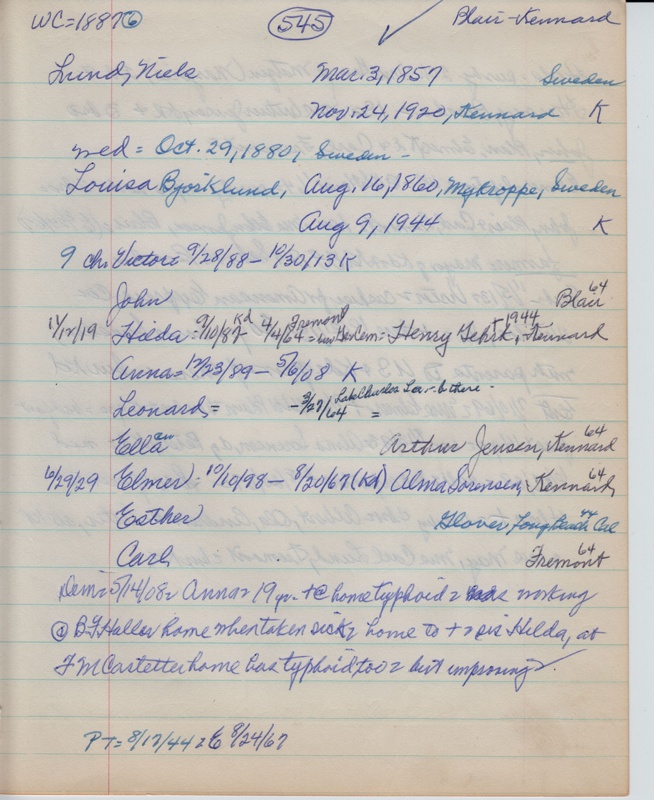 WC=1887⑥ 545 ✓ Blair-Kennard
Lund, Niels Mar. 3, 1857 Sweden
Nov. 24, 1920, Kennard K
med = Oct. 29, 1880, Sweden -
Louisa Bjorklund, Aug. 16, 1860, Mykroppe, Sweden
Aug 9, 1944 K
9 ch. Victor = 9/28/88 - 10/30/13 K
John Blair 64
11/12/19 Hilda = 9/10/82 Kd 4/4/64 Fremont = Henry Gehrk, + 1944 Kennard
Anna = 12/23/89 - 5/6/08 K
Leonard = - 3/27/64 Lake Charles La - b there - =
Ella Arthur Jensen, Kennard 64
6/29/29 Elmer = 10/10/98 - 8/20/67 (Kd) Alma Sorensen, Kennard 64
Esther Glover, Long Beach Cal 44
Carl Fremont 64
Dem = 5/14/08 = Anna = 19 yr. + @ home typhoid = was working
@ B F Haller home when taken sick, home to + = sis Hilda, at
F M Castetter home has typhoid too = but improving =
PT = 8/17/44 = E 8/24/67